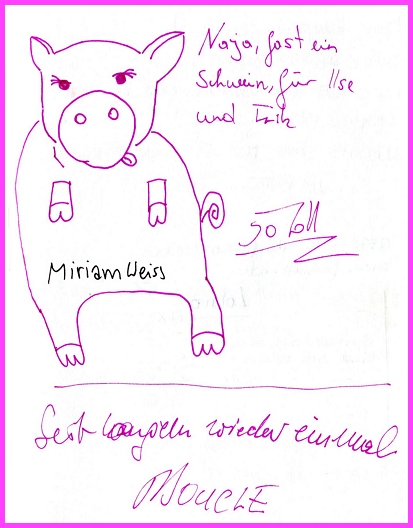 Naja, fast ein
Schwein, für Ilse
und Erik
so toll
Miriam Weiss
wieder einmal